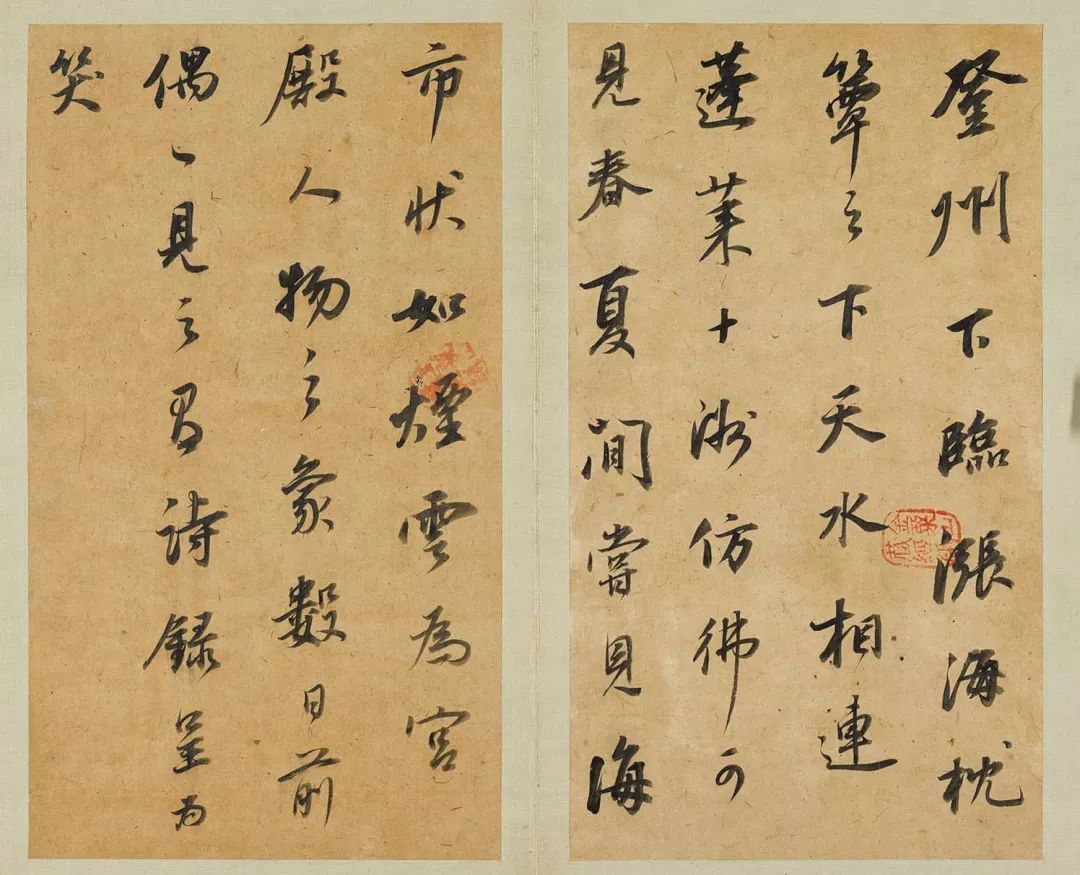 登州下臨漲海枕
簟之下天水相連
蓬萊十洲仿彿可
見春夏間嘗見海
市狀如煙雲為宮
殿人物之象數日前
偶一見之有詩錄呈為
笑